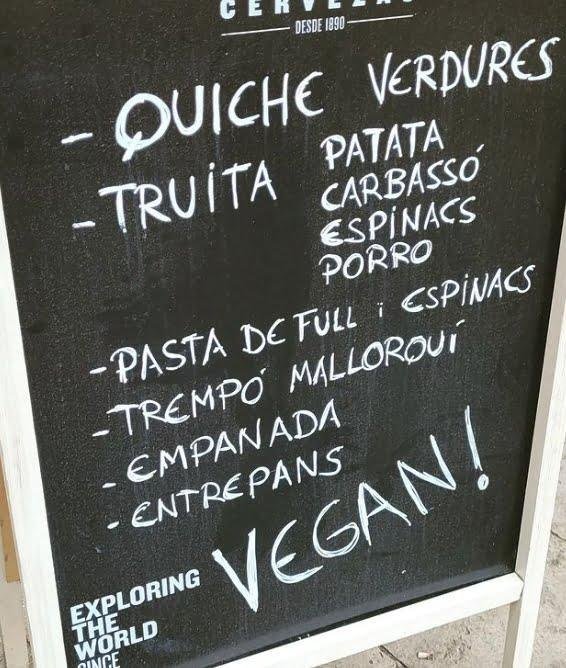 CERVEZAS
DESDE 1890
- QUICHE VERDURES
- TRUITA PATATA
CARBASSÓ
ESPINACS
PORRO
- PASTA DE FULL i ESPINACS
- TREMPÓ MALLORQUÍ
- EMPANADA
- ENTREPANS
VEGAN!
EXPLORING
THE
WORLD
SINCE